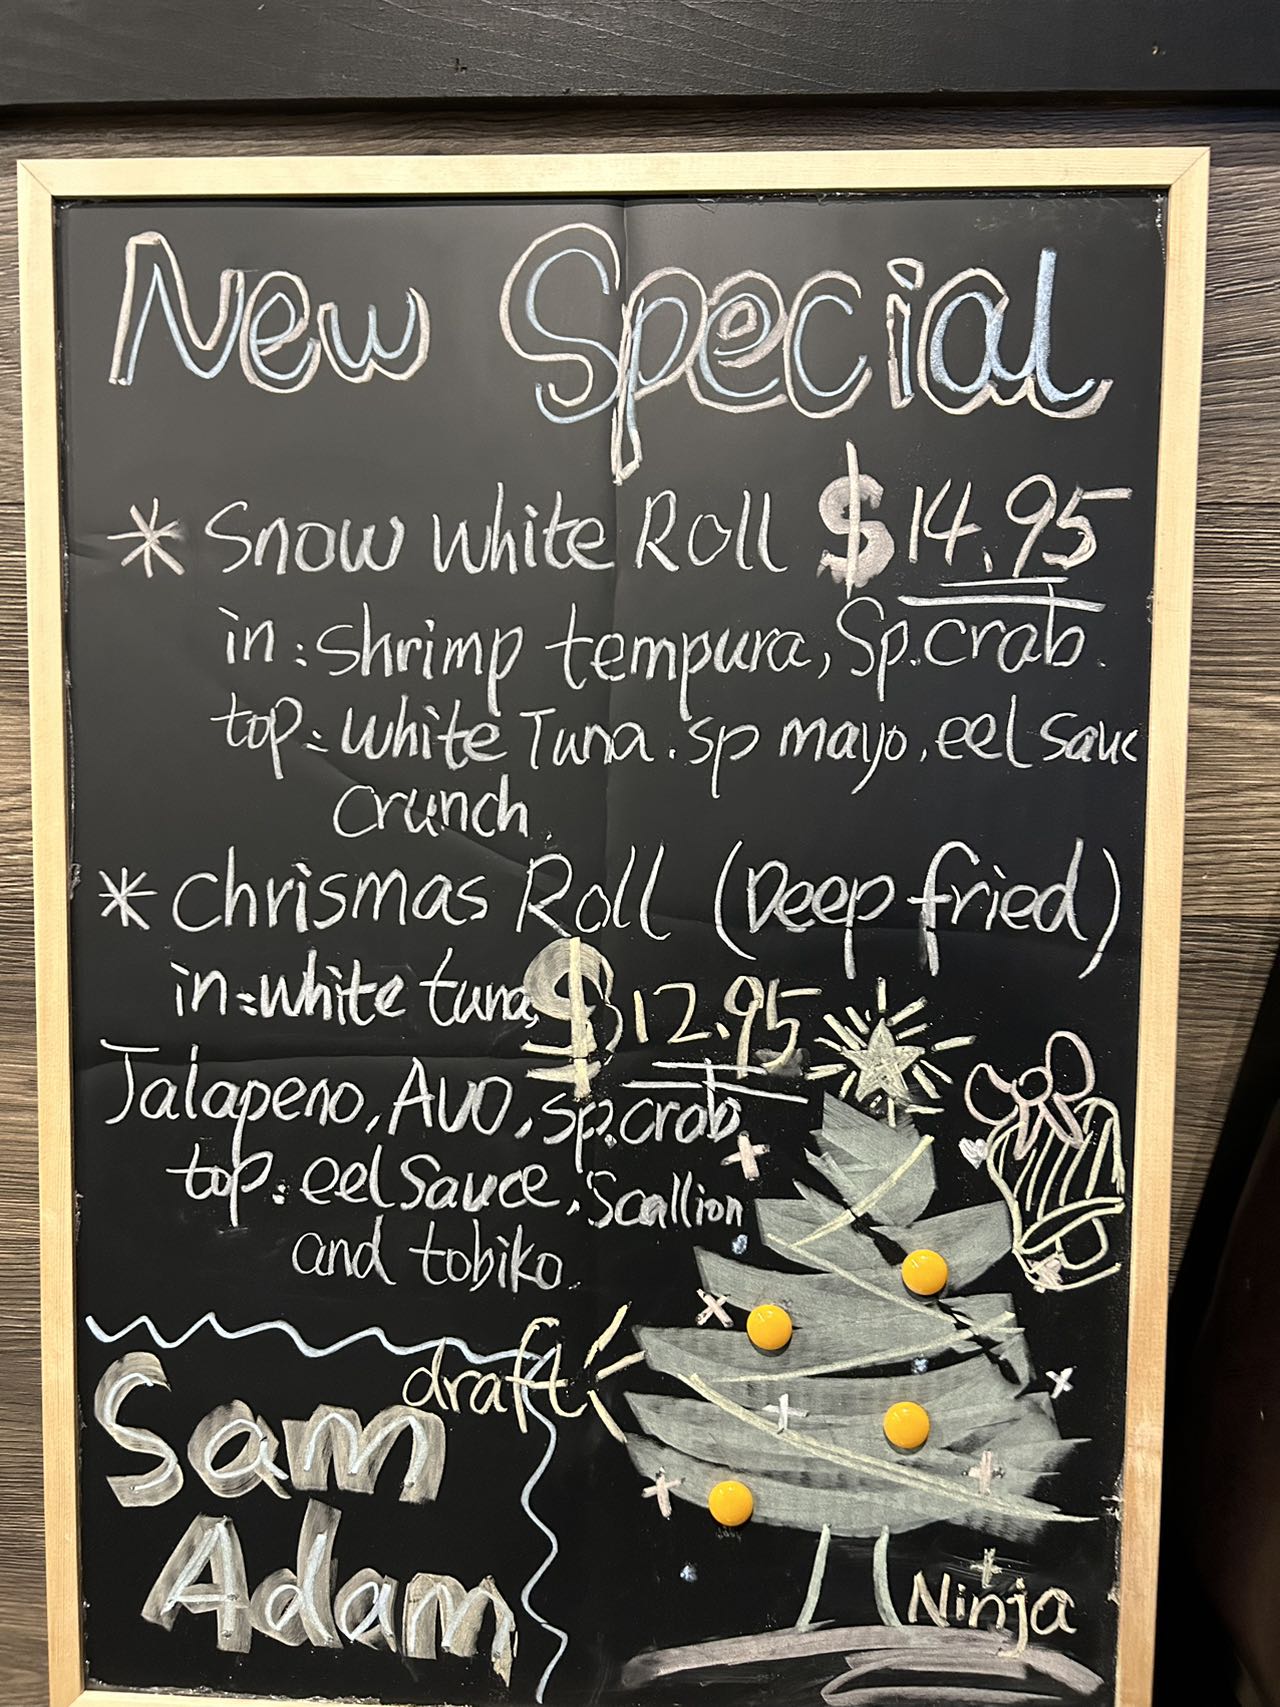 New Special
* Snow White Roll $14.95
in: shrimp tempura, Sp.crab.
top: white Tuna. sp mayo, eel sauc
crunch.
* Chrismas Roll (Deep fried)
in: white tuna, $12.95
Jalapeno, AVO, sp.crab,
top: eel sauce, Scallion
and tobiko.
draft
Sam
Adam
Ninja